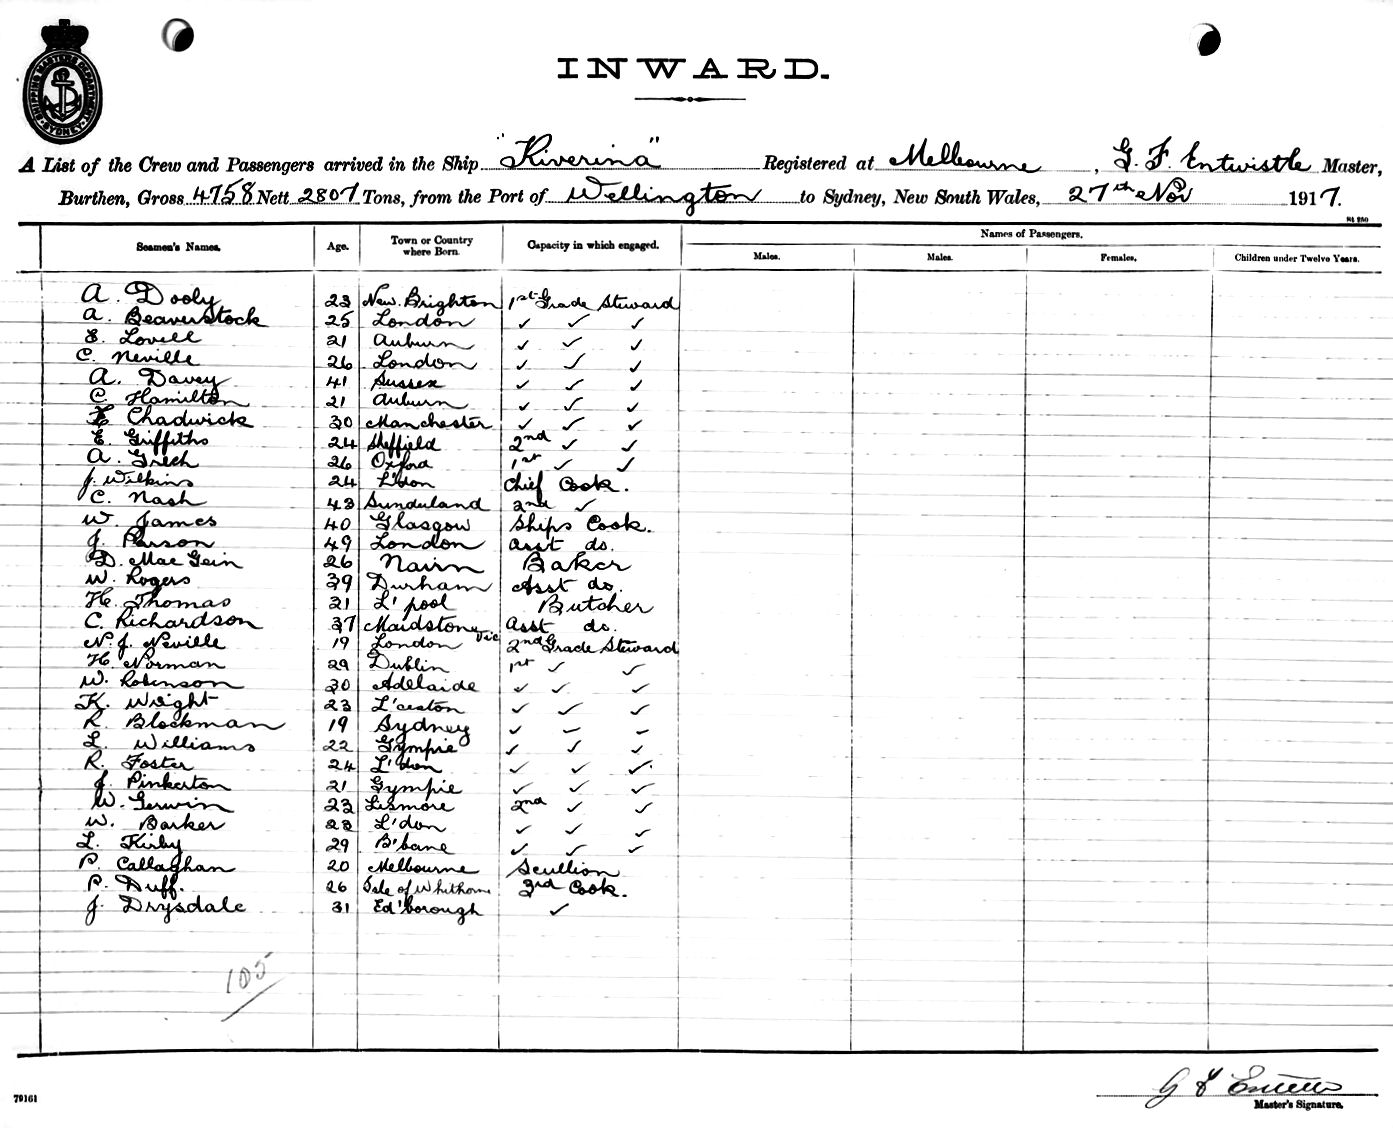 SHIPPING MASTER'S DEPARTMENT
SYDNEY
INWARD.
A List of the Crew and Passengers arrived in the Ship "Riverina" Registered at Melbourne, G. F. Entwistle Master,
Burthen, Gross 4758 Nett 2807 Tons, from the Port of Wellington to Sydney, New South Wales, 27th Nov 1917.
St 250
Seamen's Names. Age. Town or Country where Born. Capacity in which engaged. Names of Passengers.
Males. Males. Females. Children under Twelve Years.
A. Dooly 23 New. Brighton 1st Grade Steward
A. Beaverstock 25 London ✓ ✓ ✓
E. Lovell 21 Auburn ✓ ✓ ✓
C. Neville 26 London ✓ ✓ ✓
A. Davey 41 Sussex ✓ ✓ ✓
C. Hamilton 21 Auburn ✓ ✓ ✓
Chadwick 30 Manchester ✓ ✓ ✓
E. Griffiths 24 Sheffield 2nd ✓ ✓
A. Grech 26 Oxford 1st ✓ ✓
J. Wilkins 24 L'don Chief Cook.
C. Nash 43 Sunduland 2nd ✓
W. James 40 Glasgow Ships Cook.
J. Parson 49 London Asst do.
D. Mac Gein 26 Nairn Baker
W. Rogers 39 Durham Asst do.
H. Thomas 21 L'pool Butcher
C. Richardson 37 Maidstone Asst do.
N. J. Neville 19 London Vic 2nd Grade Steward
H. Norman 29 Dublin 1st ✓ ✓
W. Robinson 30 Adelaide ✓ ✓ ✓
K. Wright 23 L'ceston ✓ ✓ ✓
R. Blockman 19 Sydney ✓ ✓ ✓
L. Williams 22 Gympie ✓ ✓ ✓
R. Foster 24 L'don ✓ ✓ ✓
J. Pinkerton 21 Gympie ✓ ✓ ✓
W. Gerwin 23 Lismore 2nd ✓ ✓
W. Barker 23 L'don ✓ ✓ ✓
L. Kirby 29 B'bane ✓ ✓ ✓
P. Callaghan 20 Melbourne Scullion
P. Duff. 26 Isle of Whithorn 3rd Cook.
J. Drysdale 31 Ed'borough ✓
105
G F Entwistle
Master's Signature.
79161